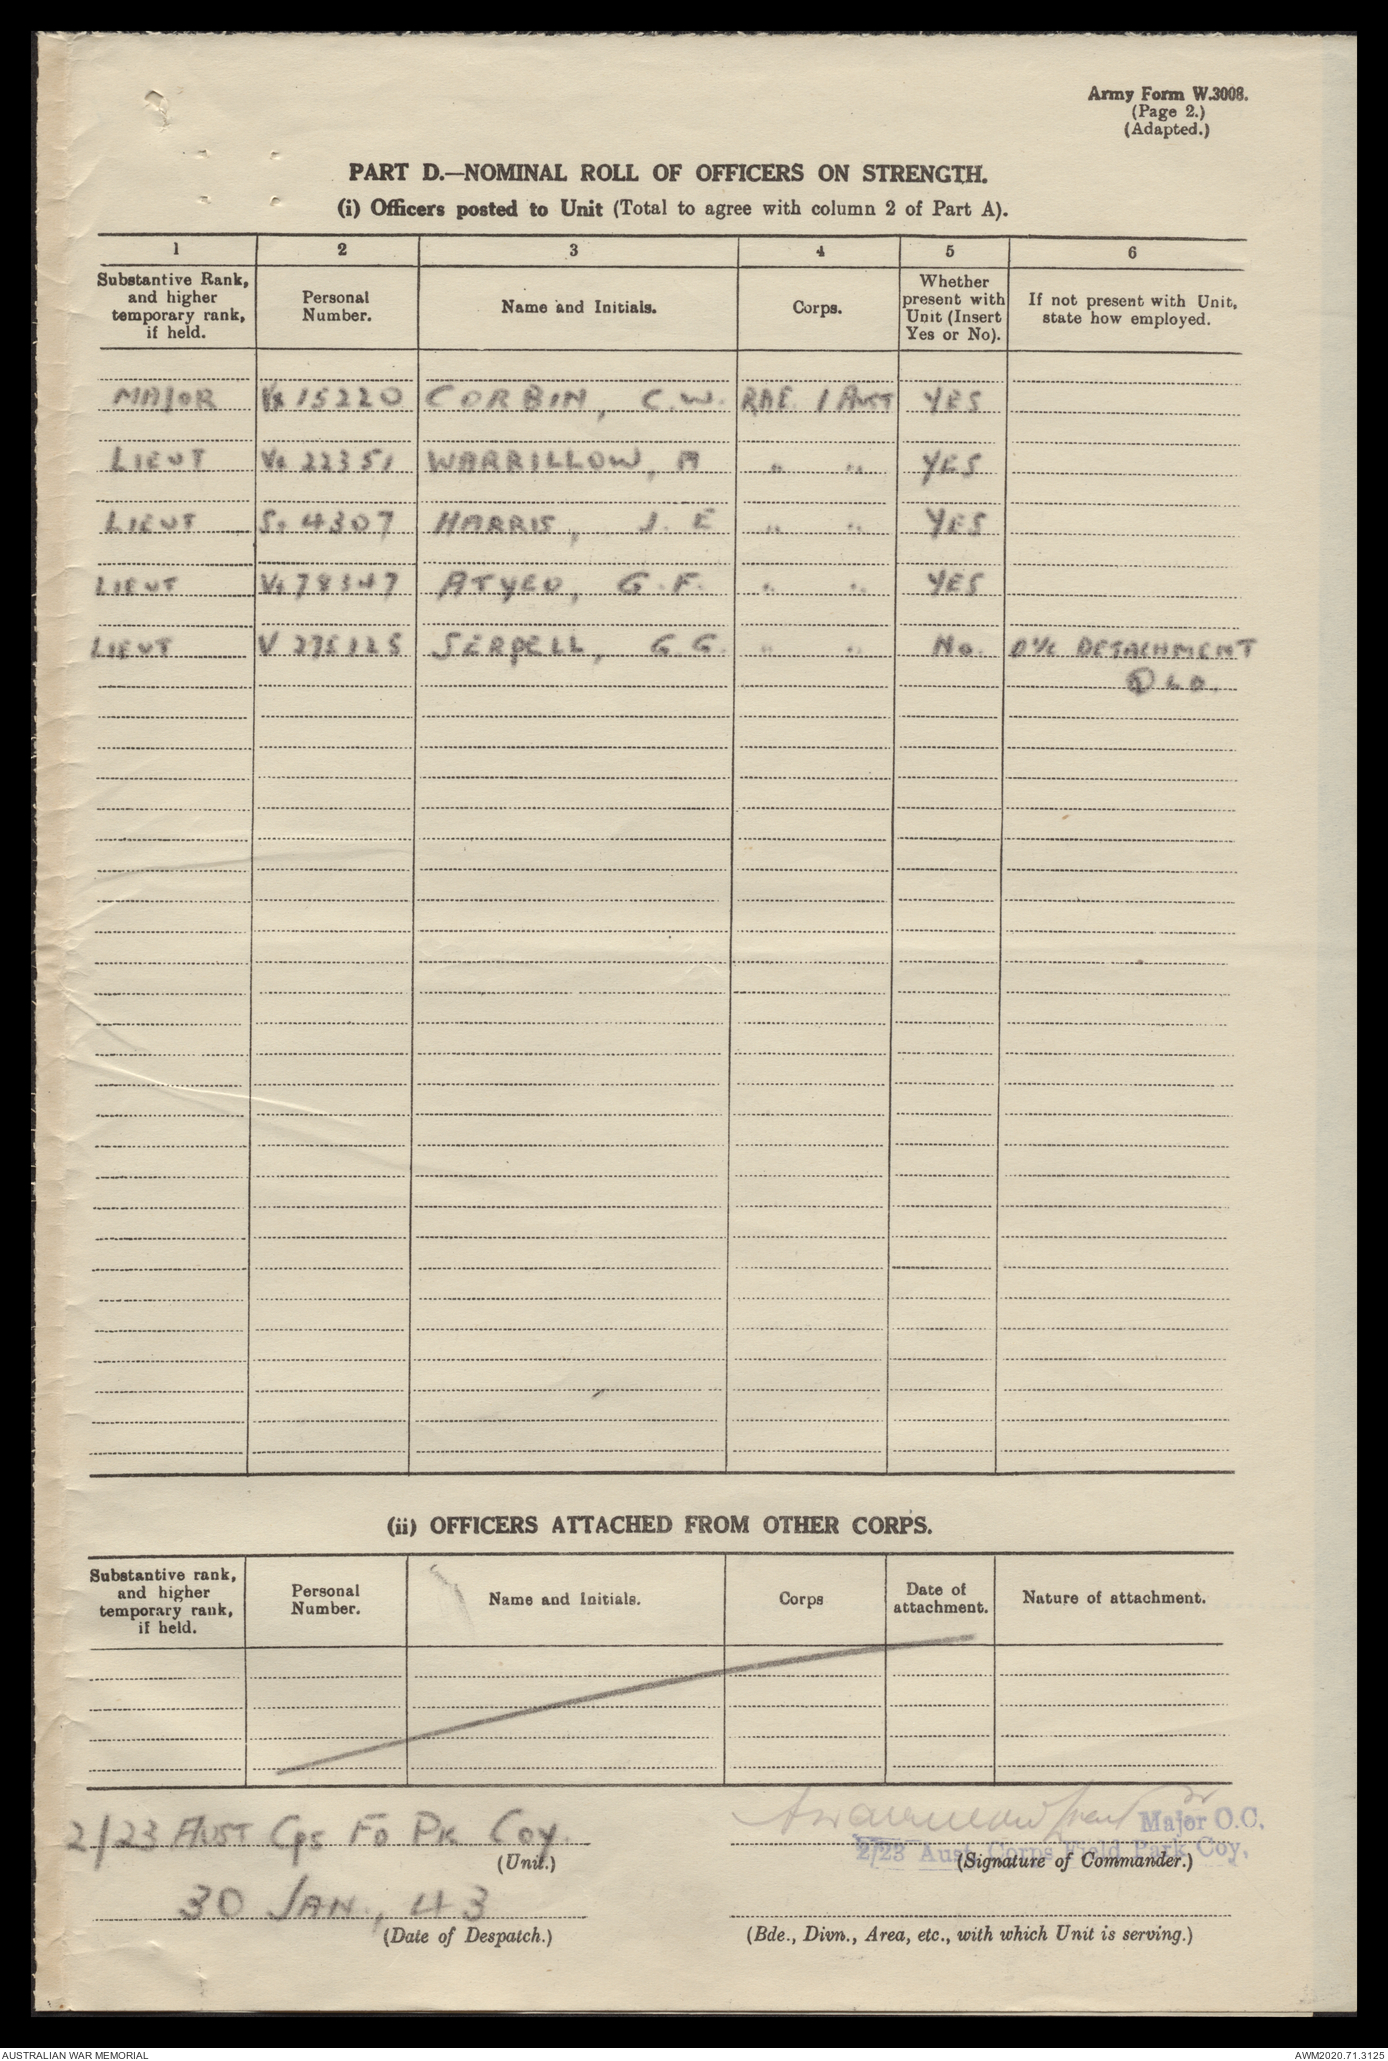 Army Form W.3008.
(Page 2.)
(Adapted.)
PART D.—NOMINAL ROLL OF OFFICERS ON STRENGTH.
(i) Officers posted to Unit (Total to agree with column 2 of Part A).
1 2 3 4 5 6
Substantive Rank, and higher temporary rank, if held. Personal Number. Name and Initials. Corps. Whether present with Unit (Insert Yes or No). If not present with Unit, state how employed.
MAJOR Vx 15220 CORBIN, C.W. RAE. 1 AUST YES
LIEUT Vx 22351 WARRILLOW, A " " YES
LIEUT Sx 4307 HARRIS, J. E " " YES
LIEUT Vx 78347 ATYEO, G. F. " " YES
LIEUT V 275125 SERPELL, G G. " " No. O i/c DETACHMENT
QLD.
(ii) OFFICERS ATTACHED FROM OTHER CORPS.
Substantive rank, and higher temporary rank, if held. Personal Number. Name and Initials. Corps Date of attachment. Nature of attachment.
2/23 AUST Cps FD PK Coy.
(Unit.)
Major O.C.
2/23 Aust Corps Field Park Coy,
(Signature of Commander.)
30 JAN., 43
(Date of Despatch.)
(Bde., Divn., Area, etc., with which Unit is serving.)
AUSTRALIAN WAR MEMORIAL
AWM2020.71.3125